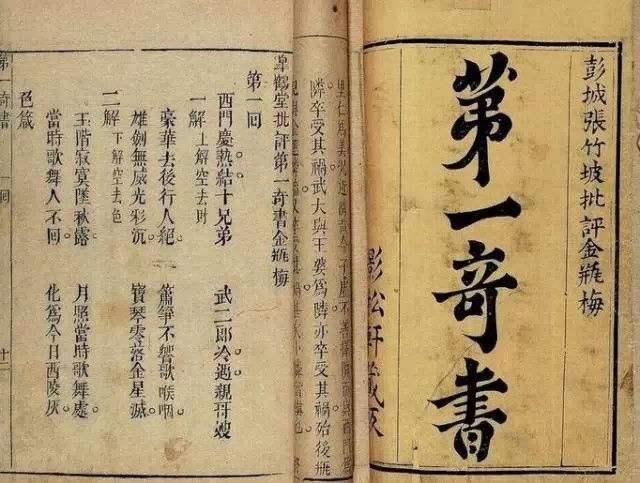 彭城張竹坡批評金瓶梅
第一奇書
影松軒
隣卒受其禍武大與王婆為隣亦卒受其禍殆後瓶
皐鶴堂批評第一奇書金瓶梅
第一回
西門慶熱結十兄弟　武二郎冷遇親哥嫂
一解　上解空去财
豪華去後行人絕　簫筝不響歌喉咽
雄劍無威光彩沉　寶琴零落金星滅
二解　下解空去色
玉階寂寞墜秋露　月照當時歌舞處
當時歌舞人不回　化為今日西陵灰
色箴
第一奇書　回